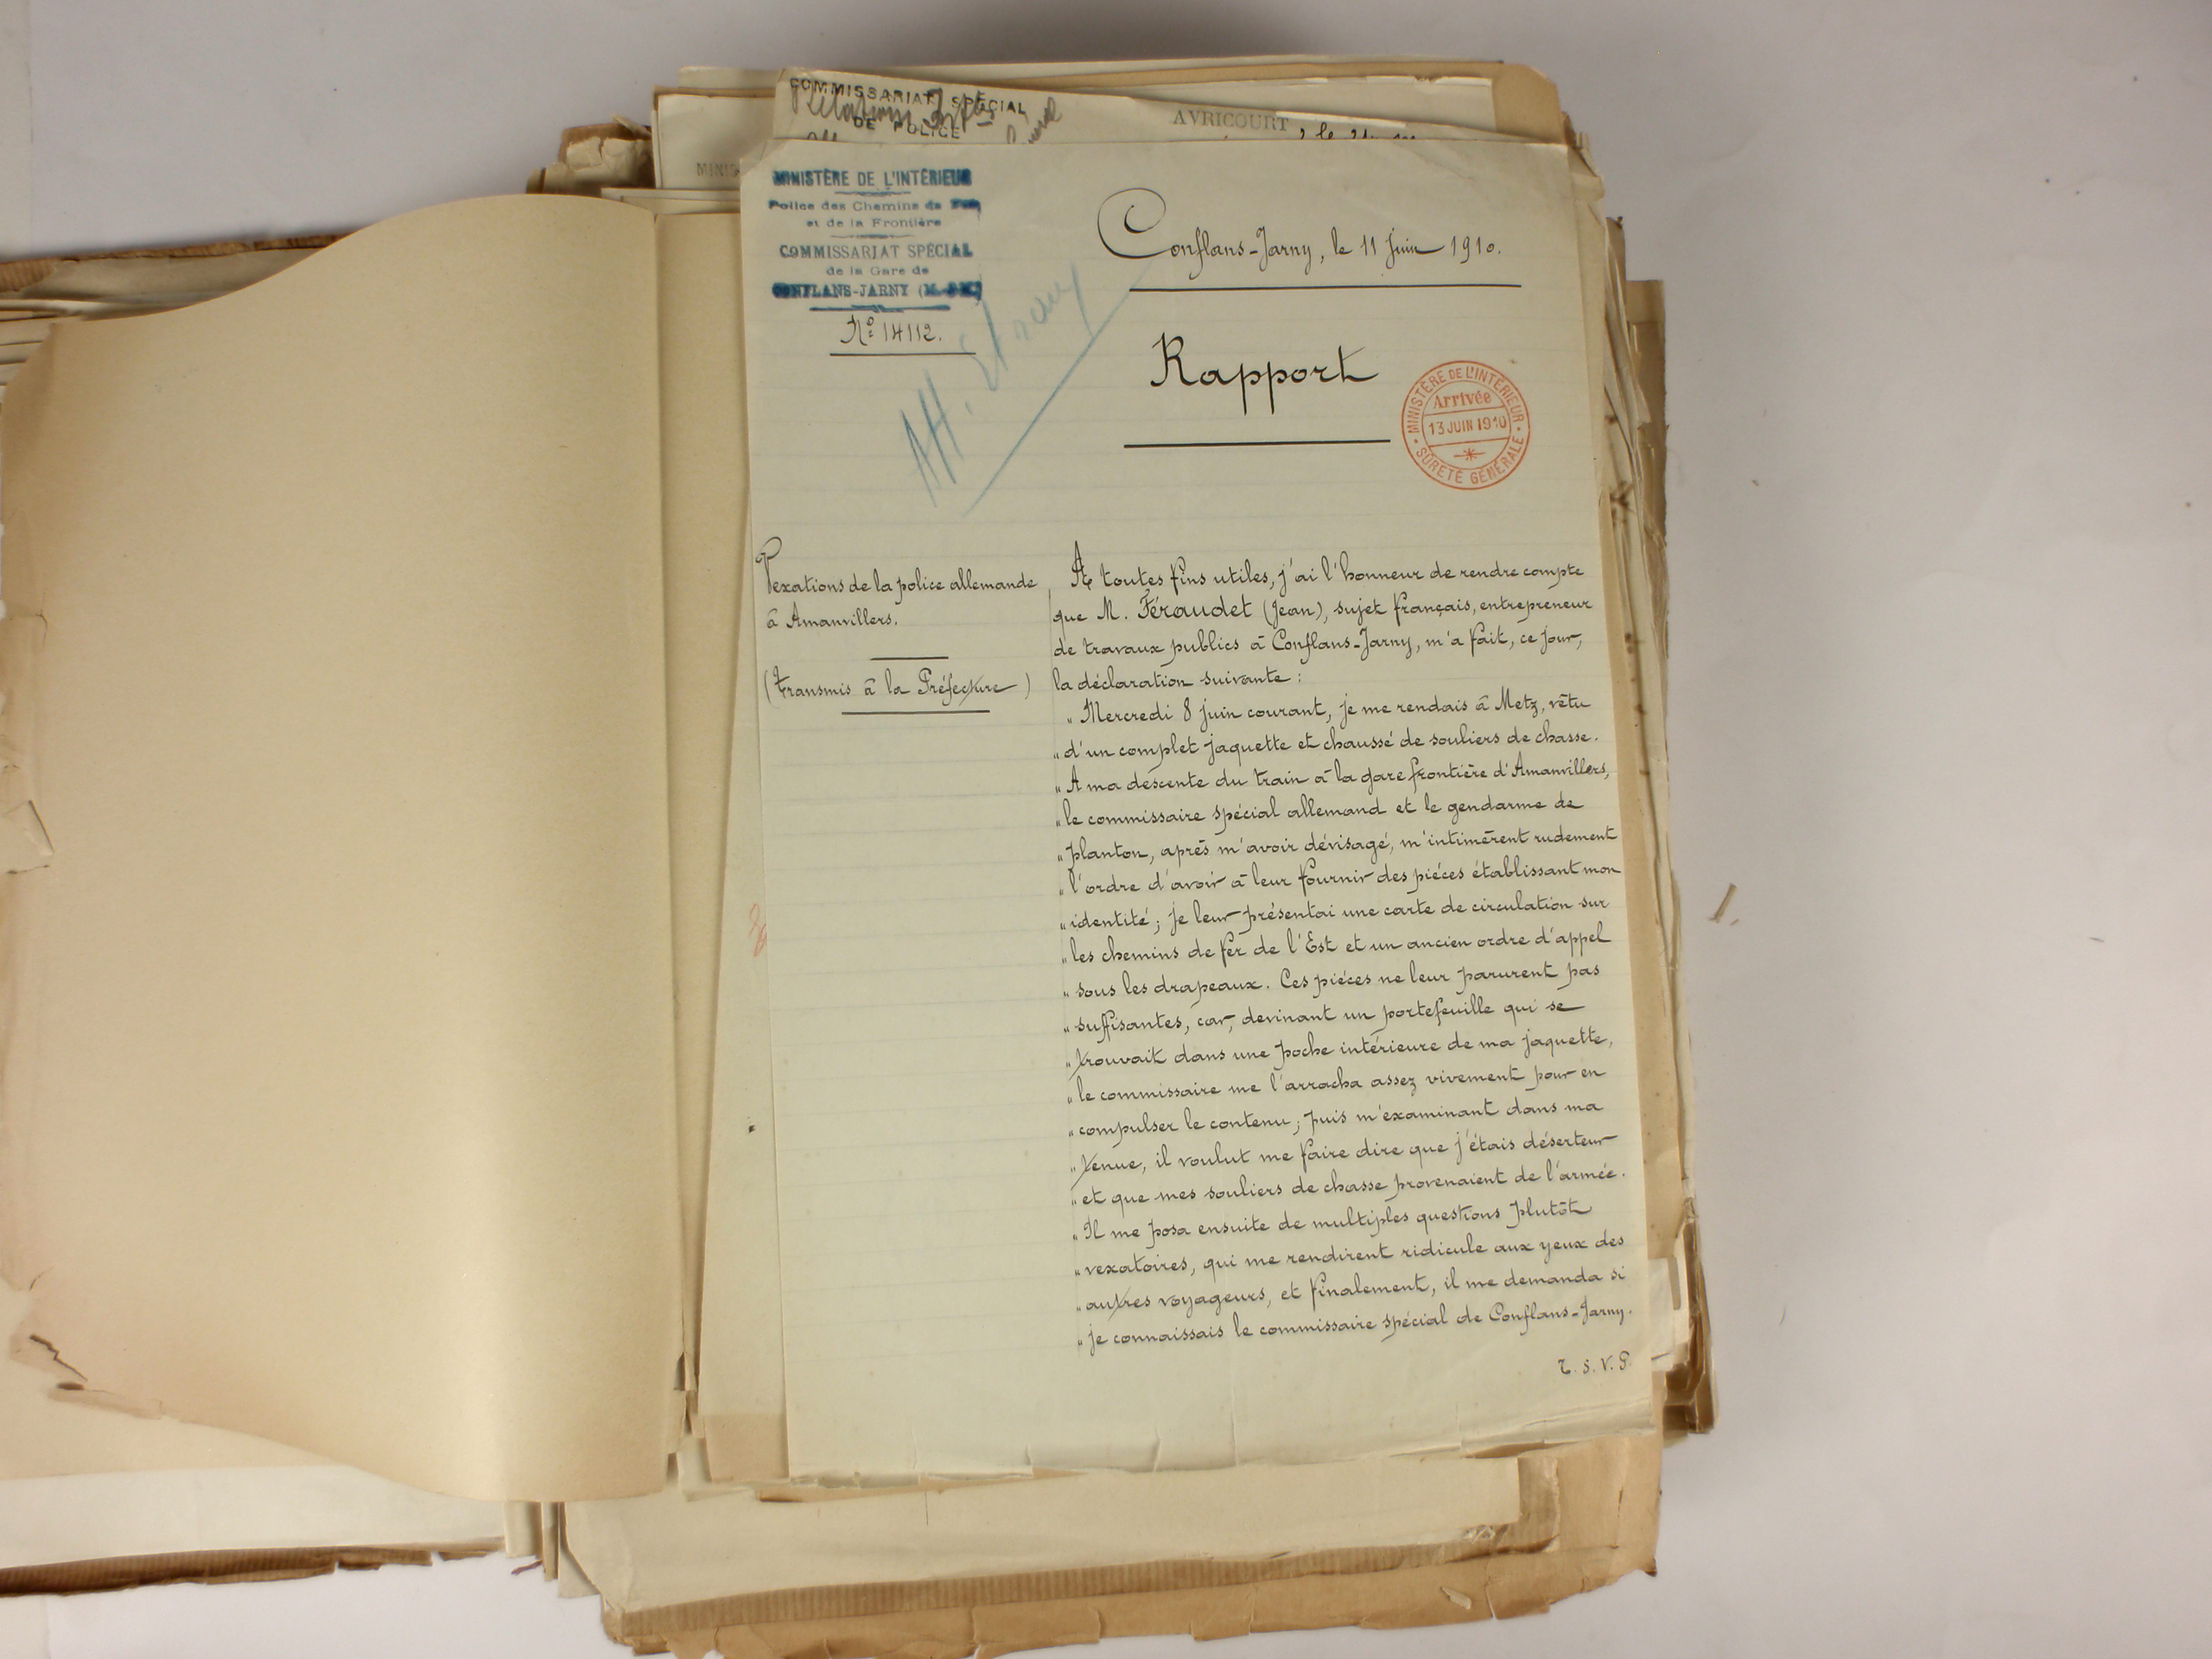 COMMISSARIAT SPÉCIAL
DE POLICE
AVRICOURT, le
MINIS
MINISTÈRE DE L'INTÉRIEUR
Police des Chemins de Fer
et de la Frontière
COMMISSARIAT SPÉCIAL
de la Gare de
CONFLANS-JARNY (M.-&-M.)
N° 14112.
Conflans-Jarny, le 11 Juin 1910.
Rapport
MINISTÈRE DE L'INTÉRIEUR
Arrivée
13 JUIN 1910
SÛRETÉ GÉNÉRALE
Vexations de la police allemande
à Amanvillers.
(Transmis à la Préfecture)
A toutes fins utiles, j'ai l'honneur de rendre compte
que M. Féraudet (Jean), sujet français, entrepreneur
de travaux publics à Conflans-Jarny, m'a fait, ce jour,
la déclaration suivante :
" Mercredi 8 juin courant, je me rendais à Metz, vêtu
" d'un complet jaquette et chaussé de souliers de chasse.
" A ma descente du train à la gare frontière d'Amanvillers,
" le commissaire spécial allemand et le gendarme de
" planton, après m'avoir dévisagé, m'intimèrent rudement
" l'ordre d'avoir à leur fournir des pièces établissant mon
" identité ; je leur présentai une carte de circulation sur
" les chemins de fer de l'Est et un ancien ordre d'appel
" sous les drapeaux. Ces pièces ne leur parurent pas
" suffisantes, car, devinant un portefeuille qui se
" trouvait dans une poche intérieure de ma jaquette,
" le commissaire me l'arracha assez vivement pour en
" compulser le contenu ; puis m'examinant dans ma
" tenue, il voulut me faire dire que j'étais déserteur
" et que mes souliers de chasse provenaient de l'armée.
" Il me posa ensuite de multiples questions plutôt
" vexatoires, qui me rendirent ridicule aux yeux des
" autres voyageurs, et finalement, il me demanda si
" je connaissais le commissaire spécial de Conflans-Jarny.
T. S. V. P.